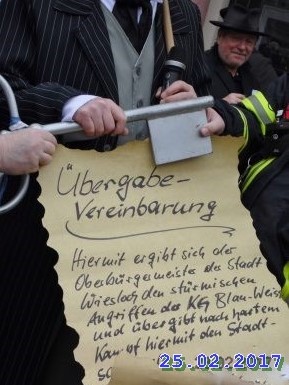 Übergabe-
Vereinbarung
Hiermit ergibt sich der
Oberbürgermeister der Stadt
Wiesloch den stürmischen
Angriffen der KG Blau-Weiss
und übergibt nach hartem
Kampf hiermit den Stadt-
25.02.2017